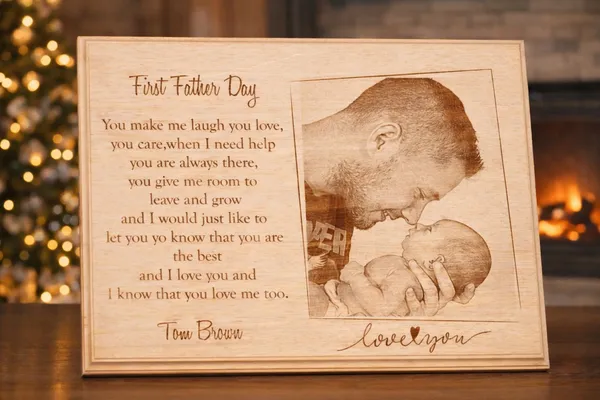 First Father Day
You make me laugh you love,
you care,when I need help
you are always there,
you give me room to
leave and grow
and I would just like to
let you yo know that you are
the best
and I love you and
I know that you love me too.
Tom Brown
love you